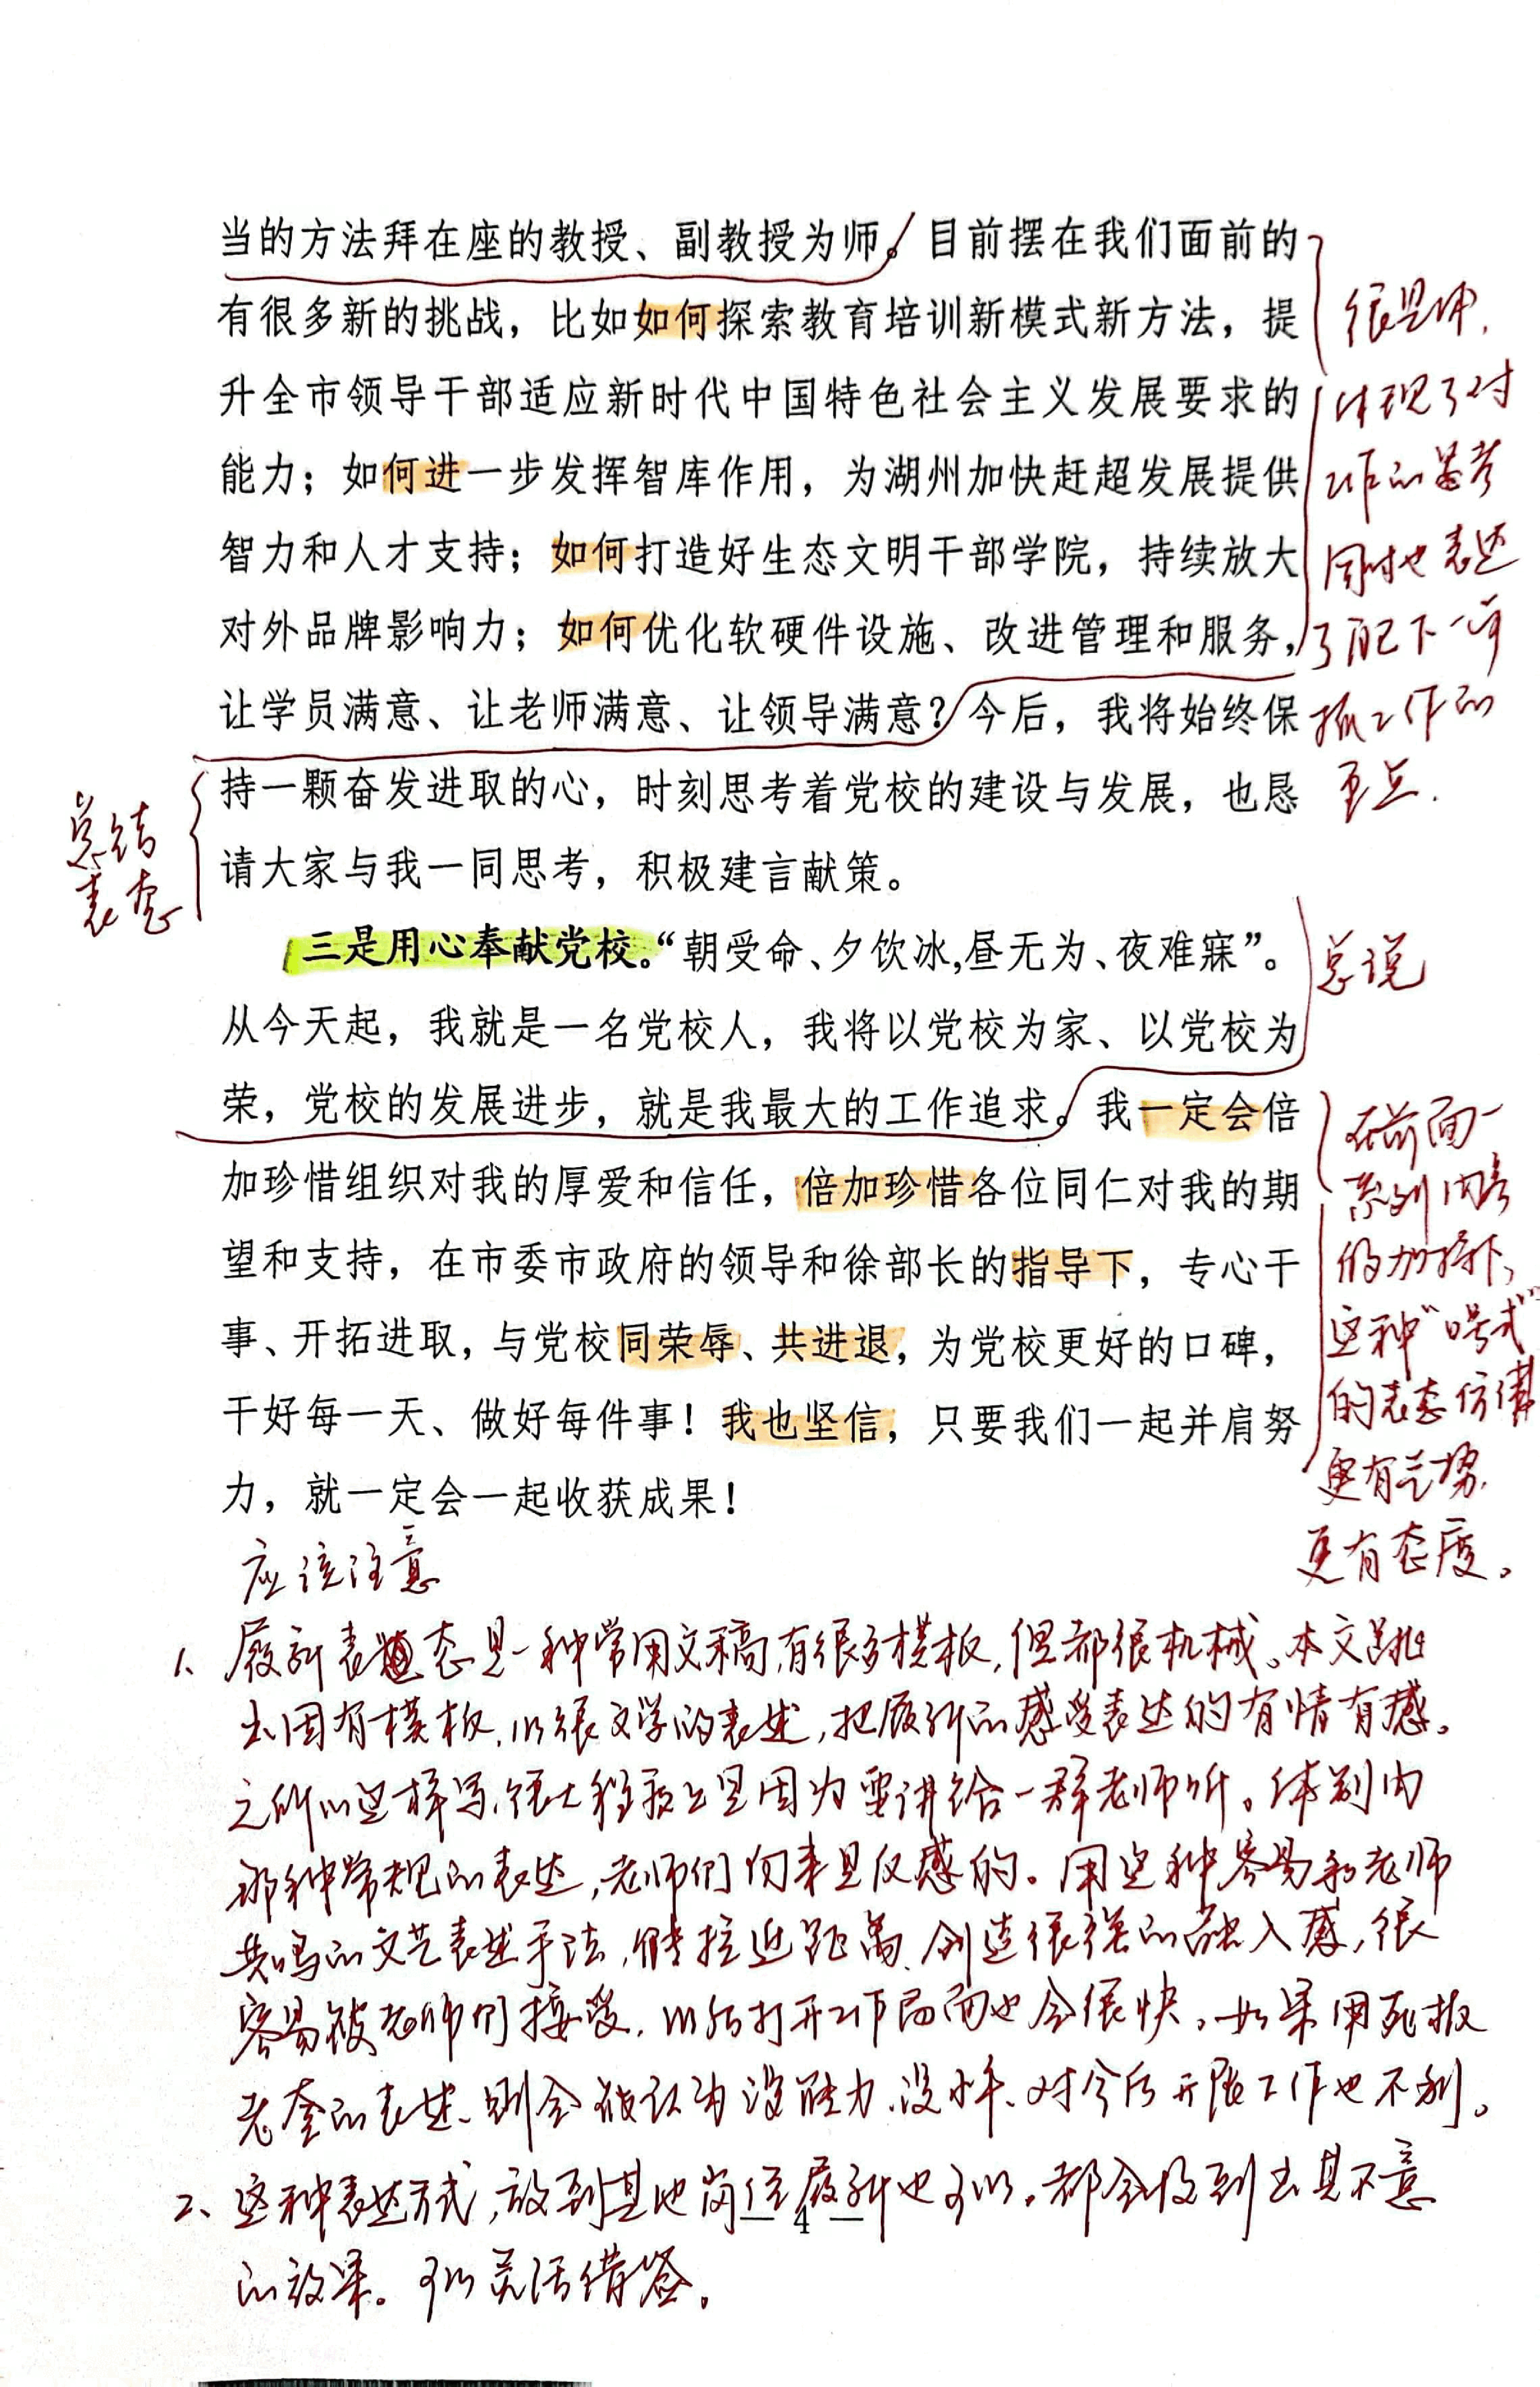 当的方法拜在座的教授、副教授为师。目前摆在我们面前的
有很多新的挑战，比如如何探索教育培训新模式新方法，提
升全市领导干部适应新时代中国特色社会主义发展要求的
能力；如何进一步发挥智库作用，为湖州加快赶超发展提供
智力和人才支持；如何打造好生态文明干部学院，持续放大
对外品牌影响力；如何优化软硬件设施、改进管理和服务，
让学员满意、让老师满意、让领导满意？今后，我将始终保
持一颗奋发进取的心，时刻思考着党校的建设与发展，也恳
请大家与我一同思考，积极建言献策。
很具体，
体现了对
工作的思考
同时也表达
了自己下一步
抓工作的
重点.
总结
表态
三是用心奉献党校。“朝受命、夕饮冰,昼无为、夜难寐”。
从今天起，我就是一名党校人，我将以党校为家、以党校为
荣，党校的发展进步，就是我最大的工作追求。我一定会倍
加珍惜组织对我的厚爱和信任，倍加珍惜各位同仁对我的期
望和支持，在市委市政府的领导和徐部长的指导下，专心干
事、开拓进取，与党校同荣辱、共进退，为党校更好的口碑，
干好每一天、做好每件事！我也坚信，只要我们一起并肩努
力，就一定会一起收获成果！
总说
在前面一
系列内容
的加持下，
这种“口号式”
的表态仿佛
更有气势.
更有态度。
应该注意
1、履新表态是一种常用文稿,有很多模板,但都很机械。本文跳
出固有模板,以很文学的表述,把履新的感受表达的有情有感。
之所以这样写,很大程度上是因为要讲给一群老师听。体制内
那种常规的表达,老师们向来是反感的。用这种容易和老师
共鸣的文艺表述手法,能拉近距离、创造很强的融入感,很
容易被老师们接受,以后打开工作局面也会很快。如果用死板
老套的表述、则会被认为没能力、没水平、对今后开展工作也不利。
2、这种表达方式,放到其他岗位履新也可以。都会收到出其不意
的效果。可以灵活借鉴。
— 4 —